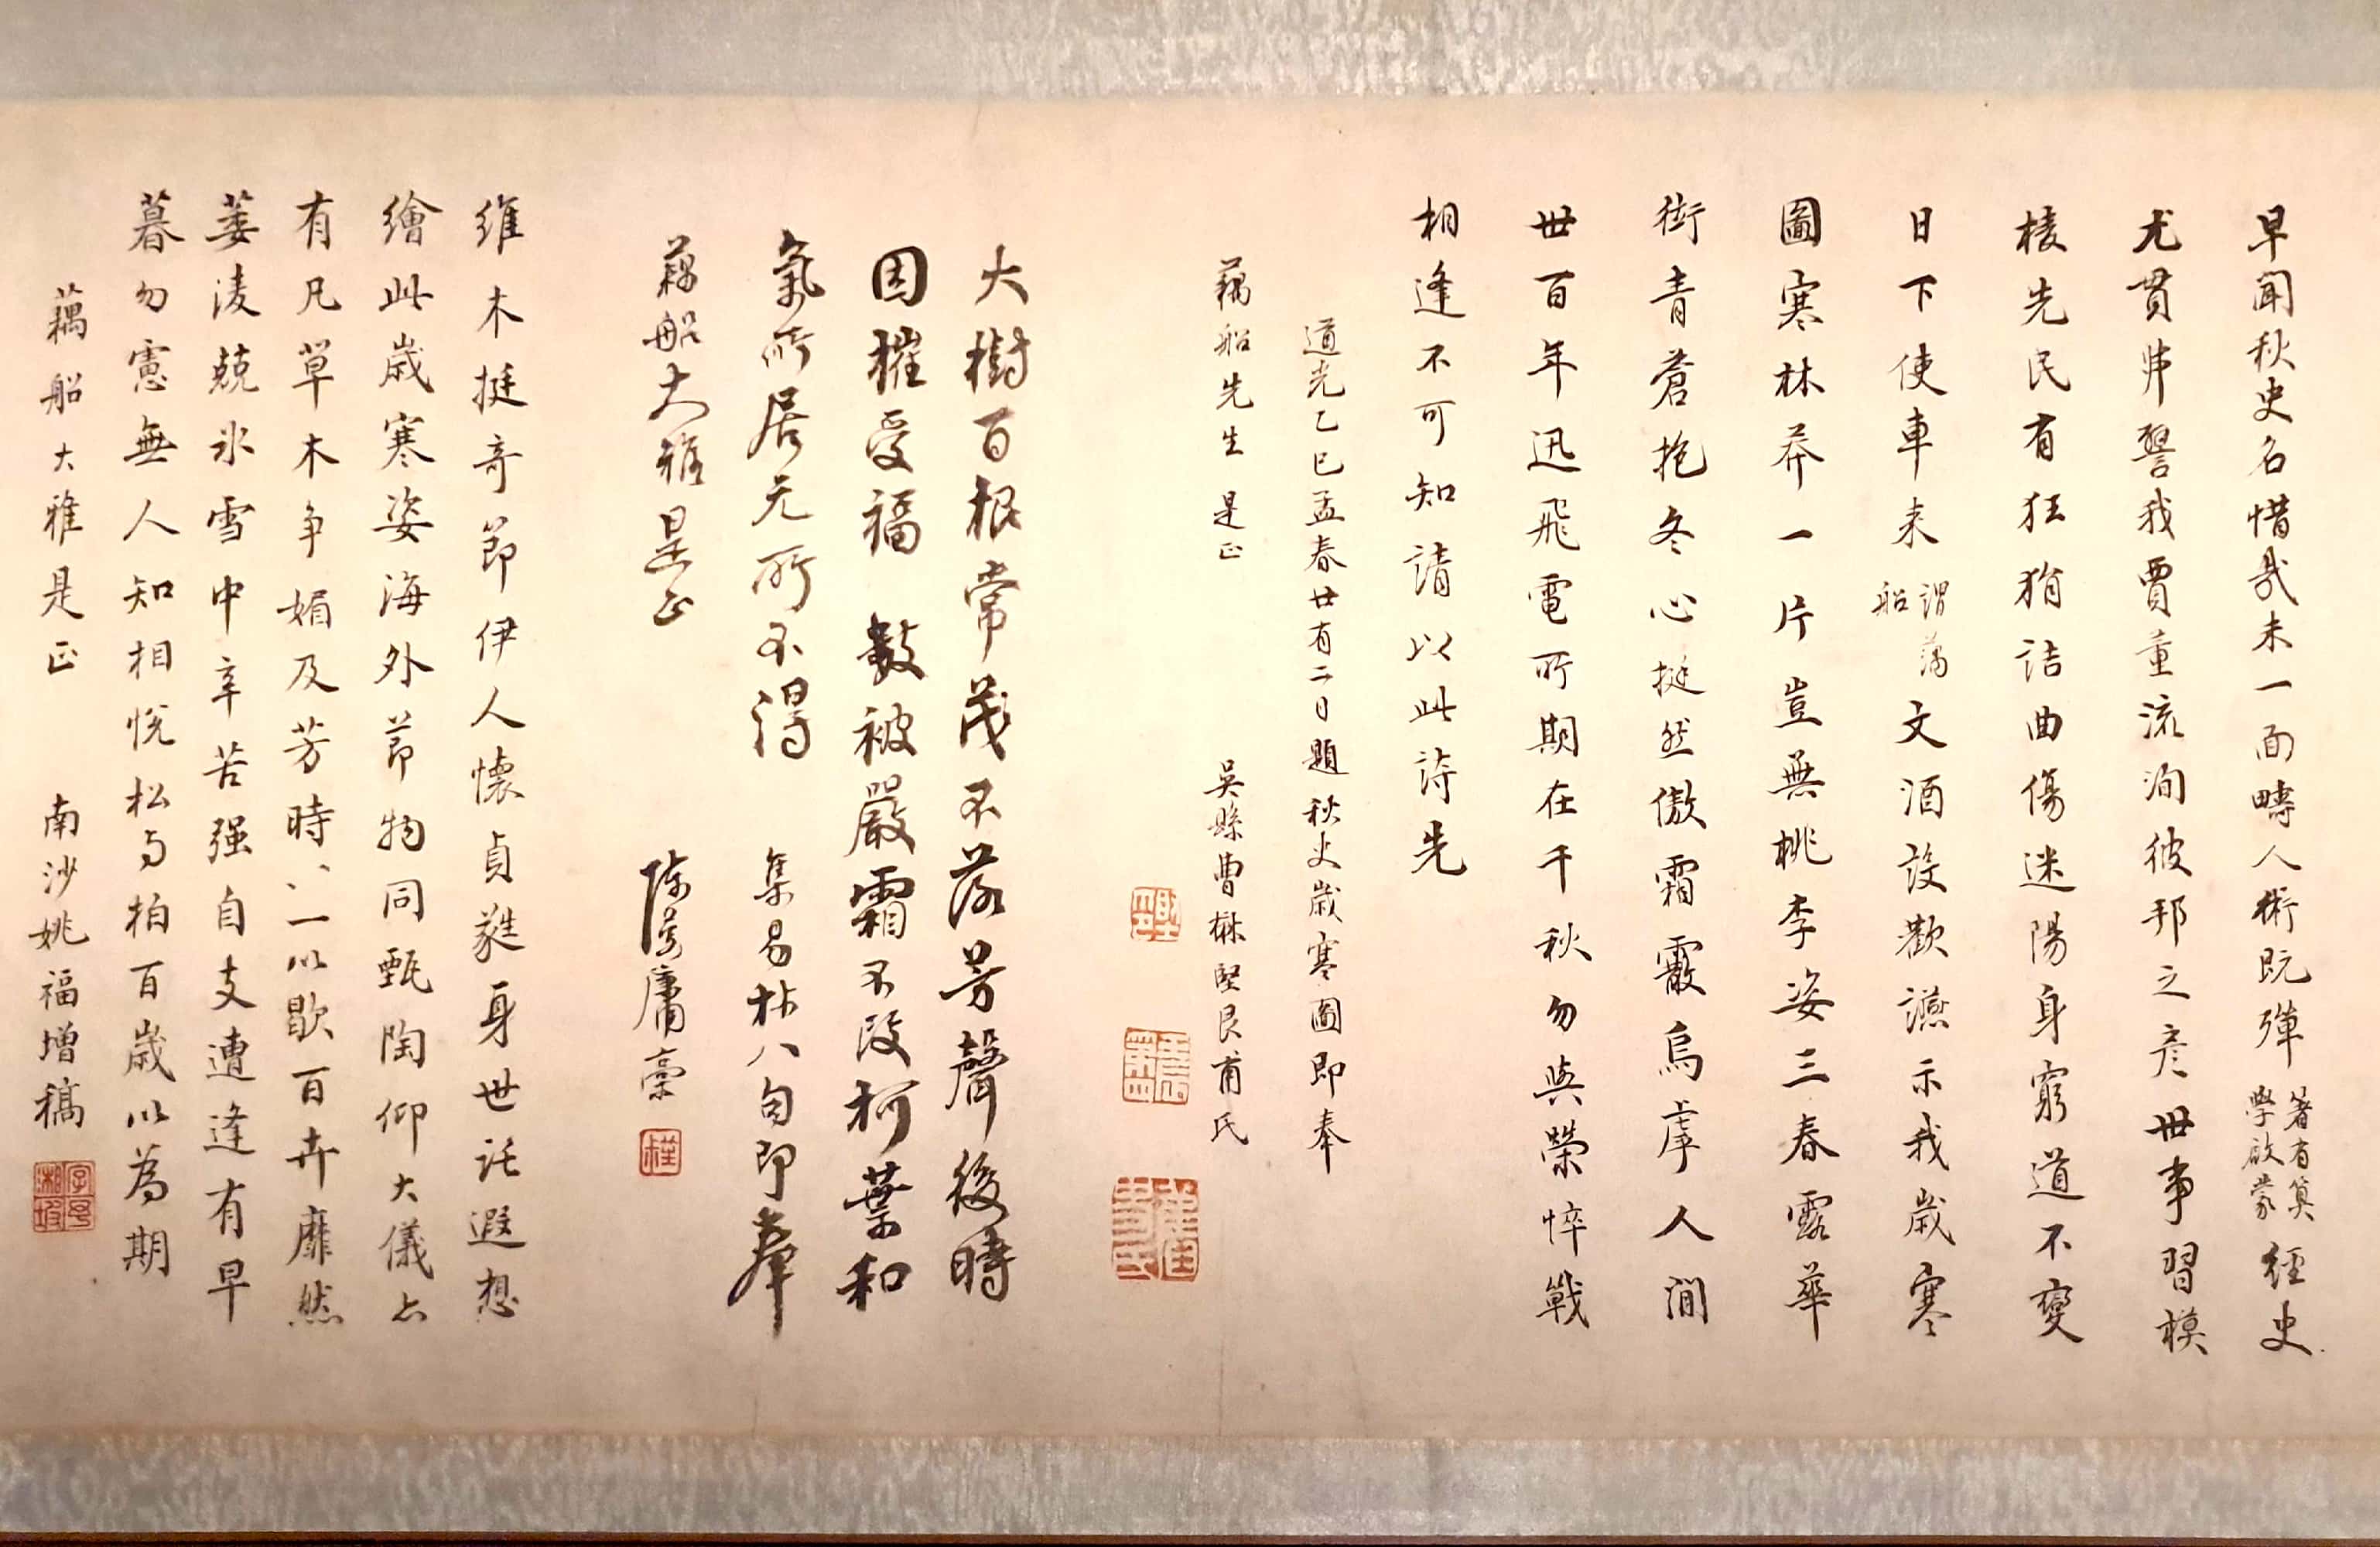 早聞秋史名惜哉未一面疇人術既殫著有算學啟蒙經史
尤貫弗譬我賈董流洵彼邦之彥世事習模
棱先民有狂狷詰曲傷迷陽身窮道不變
日下使車来謂藕船文酒設歡讌示我歲寒
圖寒林莽一片豈無桃李姿三春露華
衒青蒼抱冬心挺然傲霜霰烏虖人間
世百年迅飛電所期在千秋勿與榮悴戰
相逢不可知請以此詩先
道光乙巳孟春廿有二日題秋史歲寒圖即奉
藕船先生 是正
吳縣曹楙堅艮甫氏
大樹百根常茂不落芳聲後時
固權受福 數被嚴霜不改柯葉和
氣所居无所不得 集易林八句即奉
藕船大雅是正
陳慶庸稾
維木挺奇節伊人懷貞蕤身世託遐想
繪此歲寒姿海外節物同甄陶仰大儀亦
有凡草木争媚及芳時時一以歇百卉靡然
萎淩兢氷雪中辛苦强自支遭逢有早
暮勿憲無人知相悅松与柏百歲以為期
藕船大雅是正
南沙姚福增稿